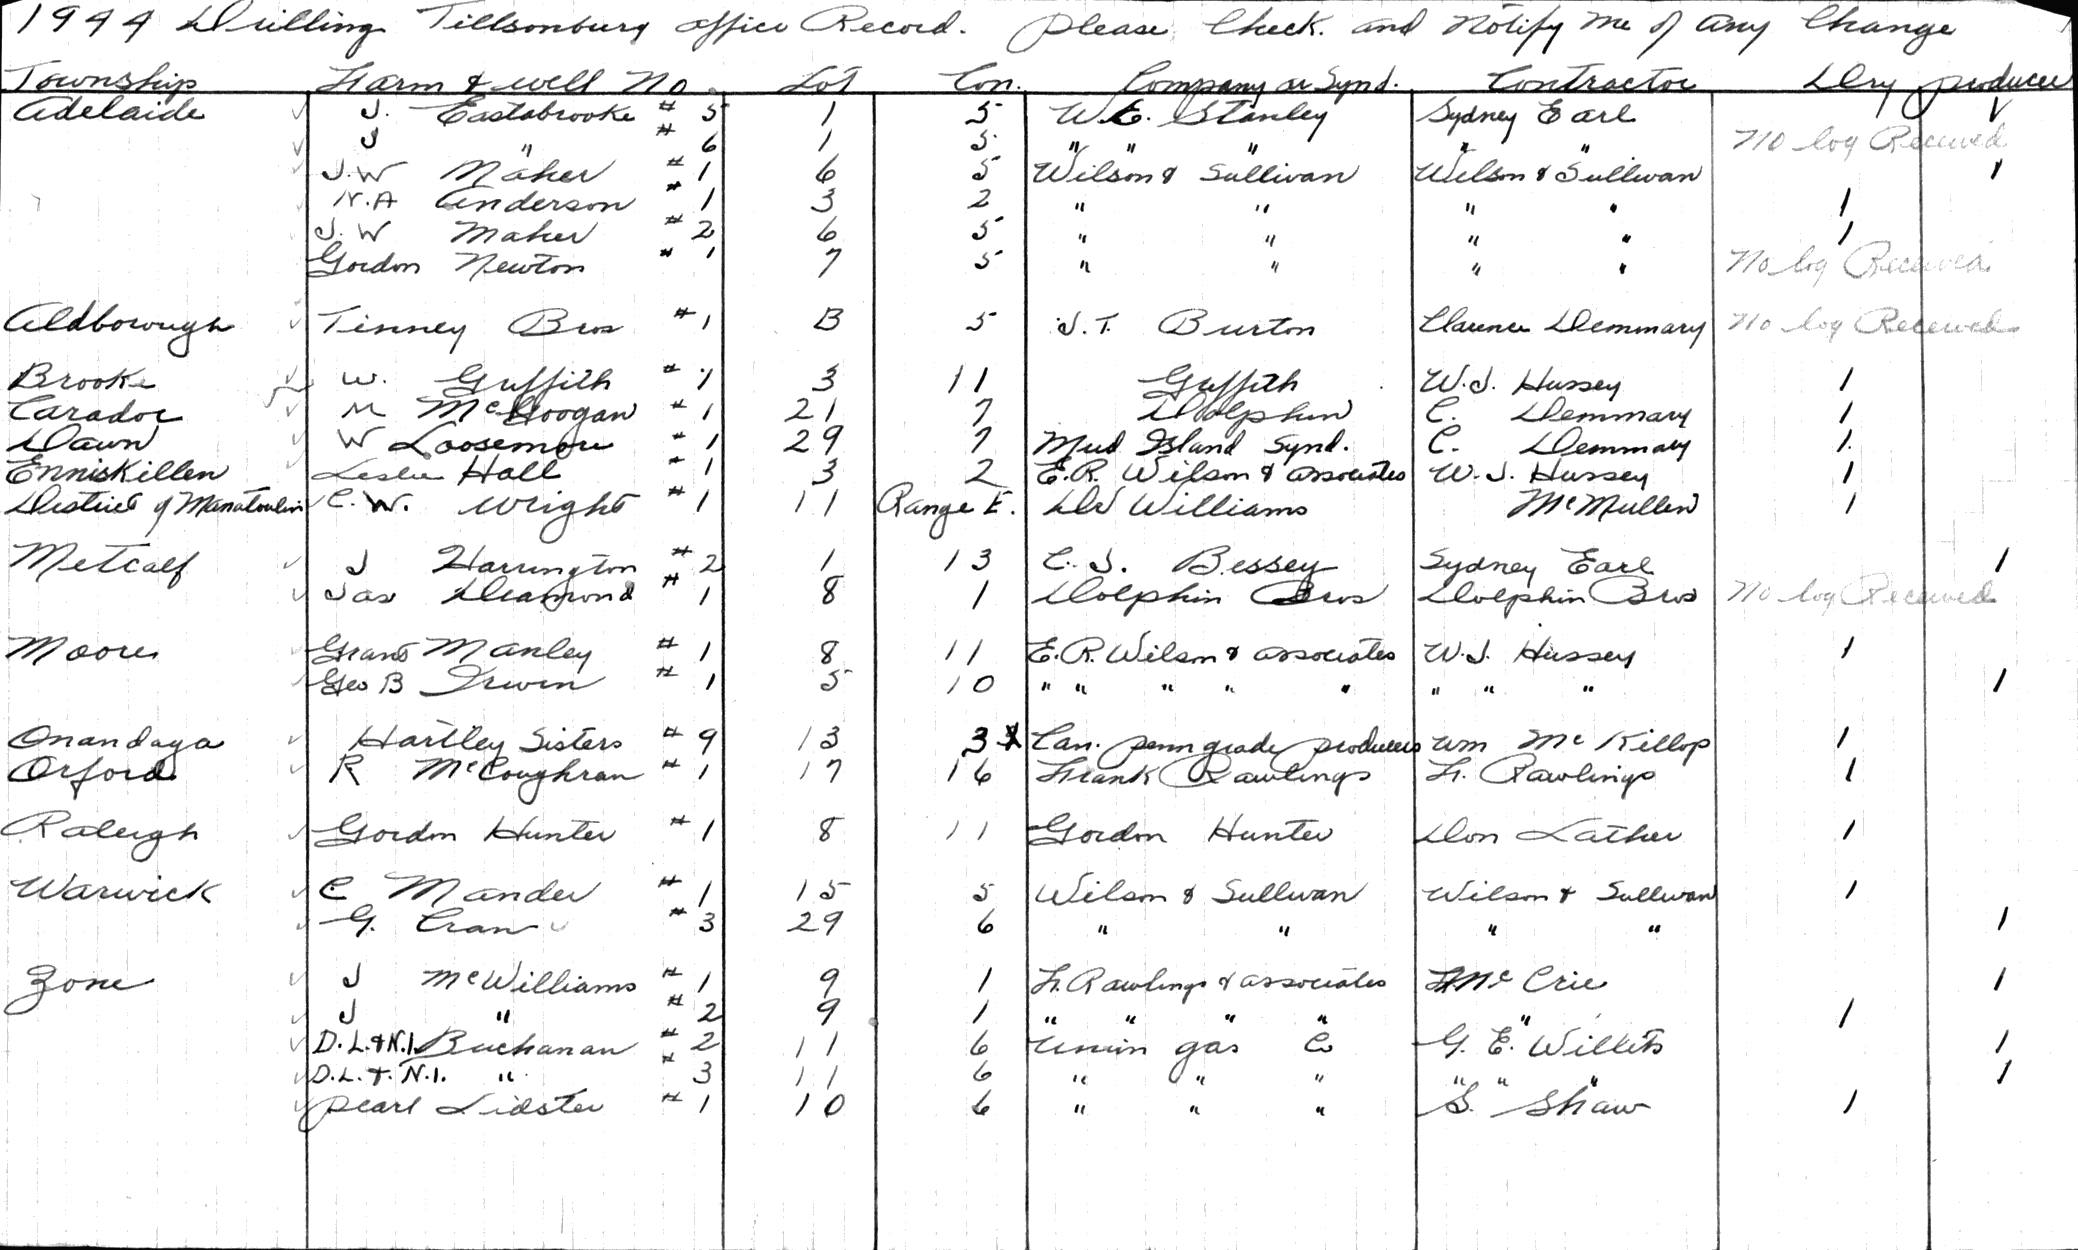 1944 Drilling Tillsonburg office Record. Please Check. and Notify Me of any Change
Township Farm & well No. Lot Con. Company or Synd. Contractor Dry producer
Adelaide J. Eastabrooke # 5 1 5 W.E. Stanley Sydney Earl 1
J " # 6 1 5 " " " " " No log Received
J.W Maher # 1 6 5 Wilson & Sullivan Wilson & Sullivan 1
N.A Anderson # 1 3 2 " " " " 1
J.W Maher # 2 6 5 " " " " 1
Gordon Newton # 1 7 5 " " " " No log Received
Aldborough Tinney Bros # 1 B 5 J.T. Burton Clarence Demmary No log Received
Brooke W. Griffith # 1 3 11 Griffith W.J. Hussey 1
Caradoc M McGoogan # 1 21 7 Dolphin C. Demmary 1
Dawn W Loosemore # 1 29 7 Mud Island Synd. C. Demmary 1
Enniskillen Leslie Hall # 1 3 2 E.R. Wilson & associates W.J. Hussey 1
District of Manatoulin C.W. Wright # 1 11 Range E. Dr Williams McMullen 1
Metcalf J Harrington # 2 1 13 C.J. Bessey Sydney Earl 1
Jas Diamond # 1 8 1 Dolphin Bros Dolphin Bros No log Received
Moore Grant Manley # 1 8 11 E.R. Wilson & associates W.J. Hussey 1
Geo B Irwin # 1 5 10 " " " " " " " " 1
Onandaga Hartley Sisters # 9 13 3 Can. penn grade producers Wm McKillop 1
Orford R McCoughran # 1 17 16 Frank Rawlings F. Rawlings 1
Raleigh Gordon Hunter # 1 8 11 Gordon Hunter Don Lather 1
Warwick C Mander # 1 15 5 Wilson & Sullivan Wilson & Sullivan 1
G. Cran # 3 29 6 " " " " 1
Zone J McWilliams # 1 9 1 F. Rawlings & associates McCrie 1
J " # 2 9 1 " " " " " 1
D.L. & N.I. Buchanan # 2 11 6 Union gas Co G.E. Willits 1
D.L. & N.I. " # 3 11 6 " " " " " " 1
Pearl Lidster # 1 10 6 " " " S. Shaw 1